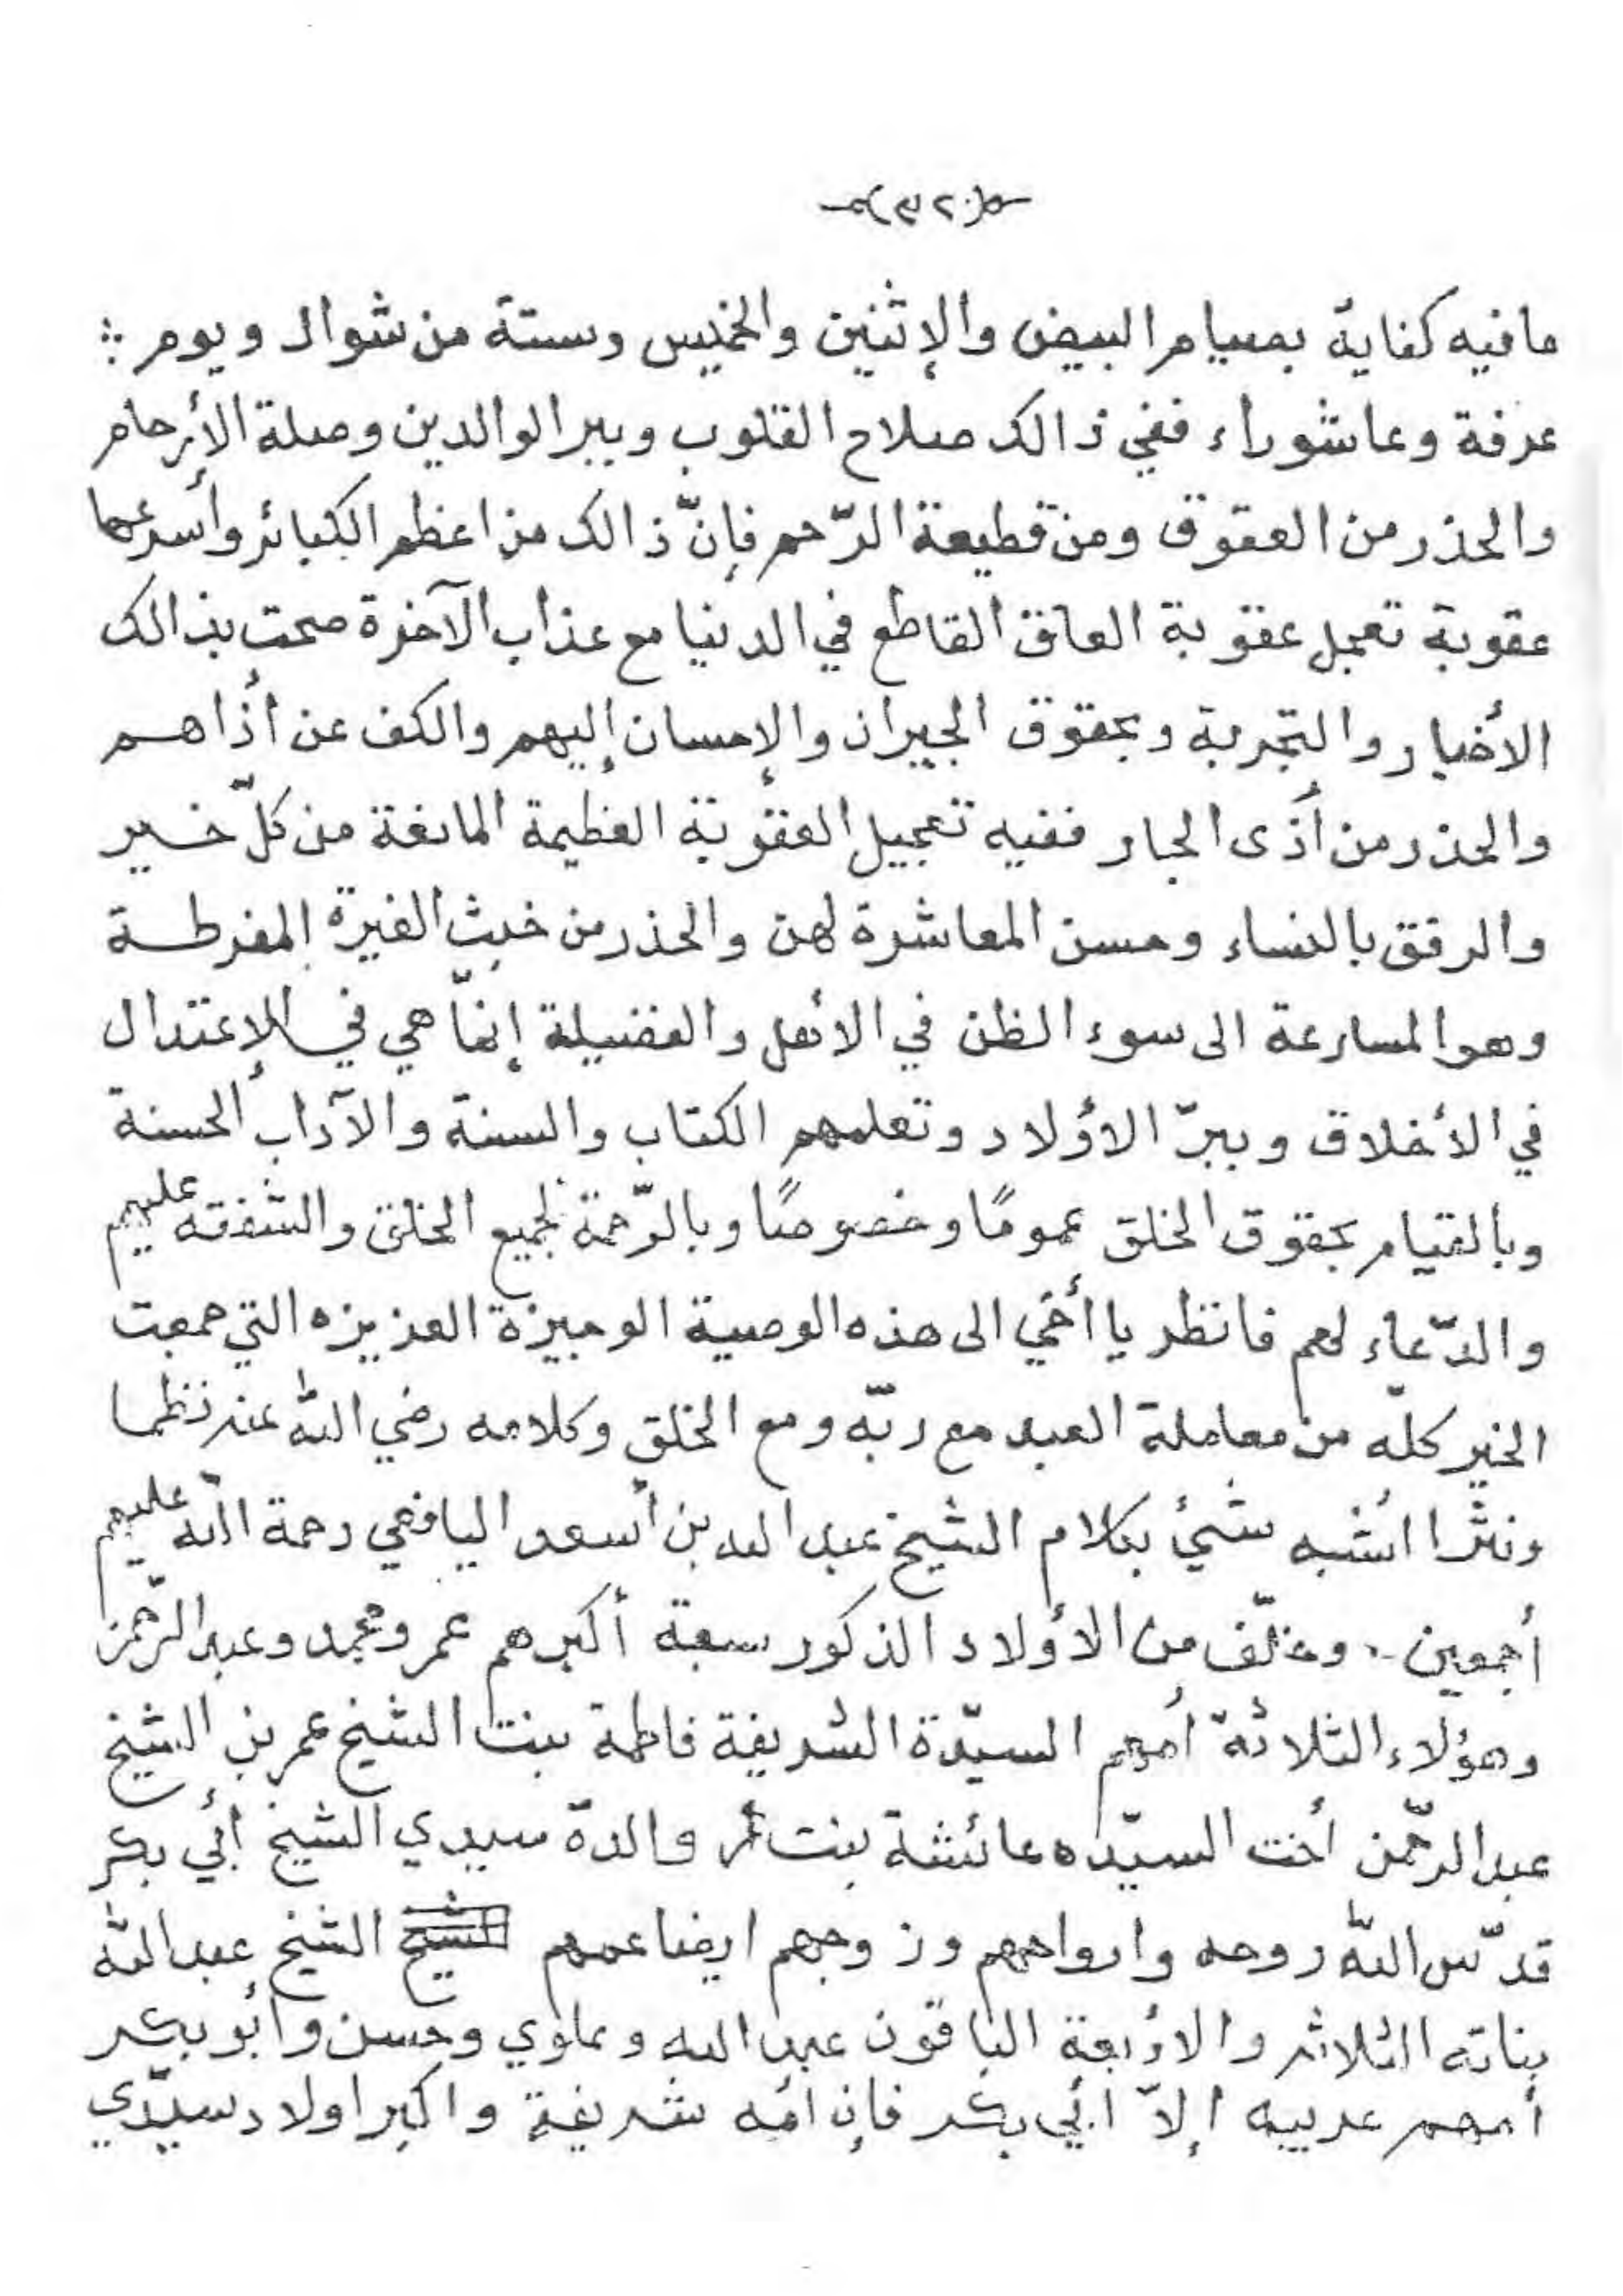 (٣٢٠)
ما فيه كفاية بصيام البيض والإثنين والخميس وستة من شوال ويوم :
عرفة وعاشوراء ففي ذالك صلاح القلوب وببر الوالدين وصلة الأرحام
والحذر من العقوق ومن قطيعة الرّحم فإنّ ذالك من اعظم الكبائر وأسرعها
عقوبة تعجل عقوبة العاق القاطع في الدنيا مع عذاب الآخرة صحت بذالك
الأخبار والتجربة وبحقوق الجيران والإحسان إليهم والكف عن أذاهم
والحذر من أذى الجار ففيه تعجيل العقوبة العظيمة المانعة من كلّ خير
والرفق بالنساء وحسن المعاشرة لهن والحذر من خبث الغيرة المفرطة
وهو المسارعة الى سوء الظن في الأهل والفضيلة إنمّا هي في الإعتدال
في الأخلاق وببرّ الأولاد وتعلمهم الكتاب والسنة والآداب الحسنة
وبالقيام بحقوق الخلق عمومًا وخصوصًا وبالرّحمة لجميع الخلق والشفقه عليهم
والدّعاء لهم فانظر يا أخي الى هذه الوصية الوجيزة العزيزه التي جمعت
الخير كلّه من معاملة العبد مع ربّه ومع الخلق وكلامه رضي الله عنه نظما
ونثرا اشبه شئ بكلام الشيخ عبد الله بن أسعد اليافعي رحمة اللّه عليهم
أجمعين . وخلّف من الأولاد الذكور سبعة أكبرهم عمر ومحمد وعبد الرّحمن
وهؤلاء الثلاثة أمهم السيّدة الشريفة فاطمة بنت الشيخ عمر بن الشيخ
عبد الرّحمن أخت السيّده عائشة بنت والدة سيدي الشيخ أبي بكر
قدّس اللّه روحه وارواحهم وزوجهم ايضا عمهم الشيخ عبد اللّه
بناته الثلاث والأربعة الباقون عبد الله وعلوي وحسن وأبو بكر
أمهم عربيه إلاّ أبي بكر فإن أمه شريفة واكبر اولاد سيّدي